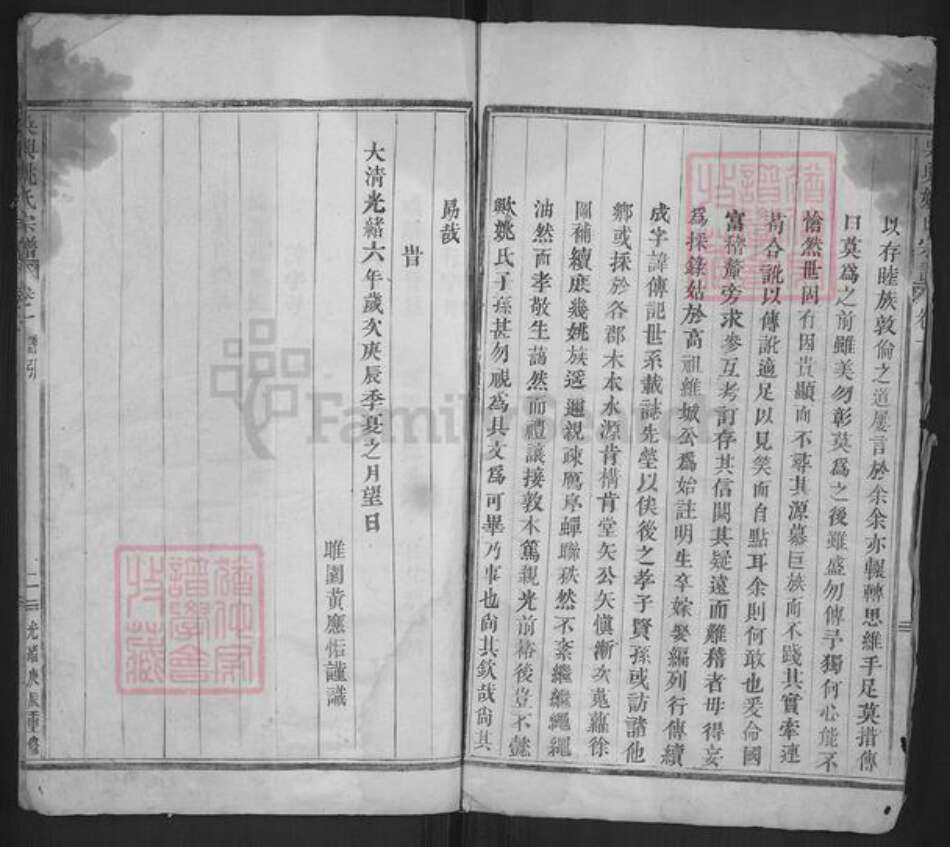 以存睦族敦倫之道屢言於余余亦輾轉思維手足莫措傳
曰莫爲之前雖美勿彰莫爲之後雖盛勿傳予獨何心能不
恰然世固有因貴顯而不尋其源慕巨族而不踐其實牽連
苟合訛以傳訛適足以見笑而自點耳余則何敢也爰命國
富稽釐旁求參互考訂存其信闕其疑遠而難稽者毋得妄
爲採錄姑於高祖維城公爲始註明生卒嫁娶編列行傳續
成字諱傳記世系載誌先塋以俟後之孝子賢孫或訪諮他
鄉或採於各郡木本水源肯構肯堂矢公矢慎漸次蒐羅徐
圖補續庶幾姚族遐邇親疎鴈序蟬聯秩然不紊繼繼繩繩
油然而孝敬生藹然而禮讓接敦本篤親光前裕後豈不懿
歟姚氏子孫甚勿視爲具文爲可畢乃事也尚其欽哉尚其
勗哉
旹
大清光緒六年歲次庚辰季夏之月望日
睢園黃應佑謹識
吳興姚氏宗譜 卷一 譜引
二 光緒庚辰重修
吳興姚氏宗譜 卷一
FamilySearch
譜學會
收藏